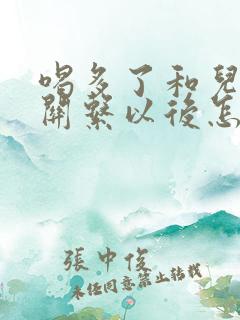 喝多了和兒
關繫以後怎
張中俊
未经同意禁止转载